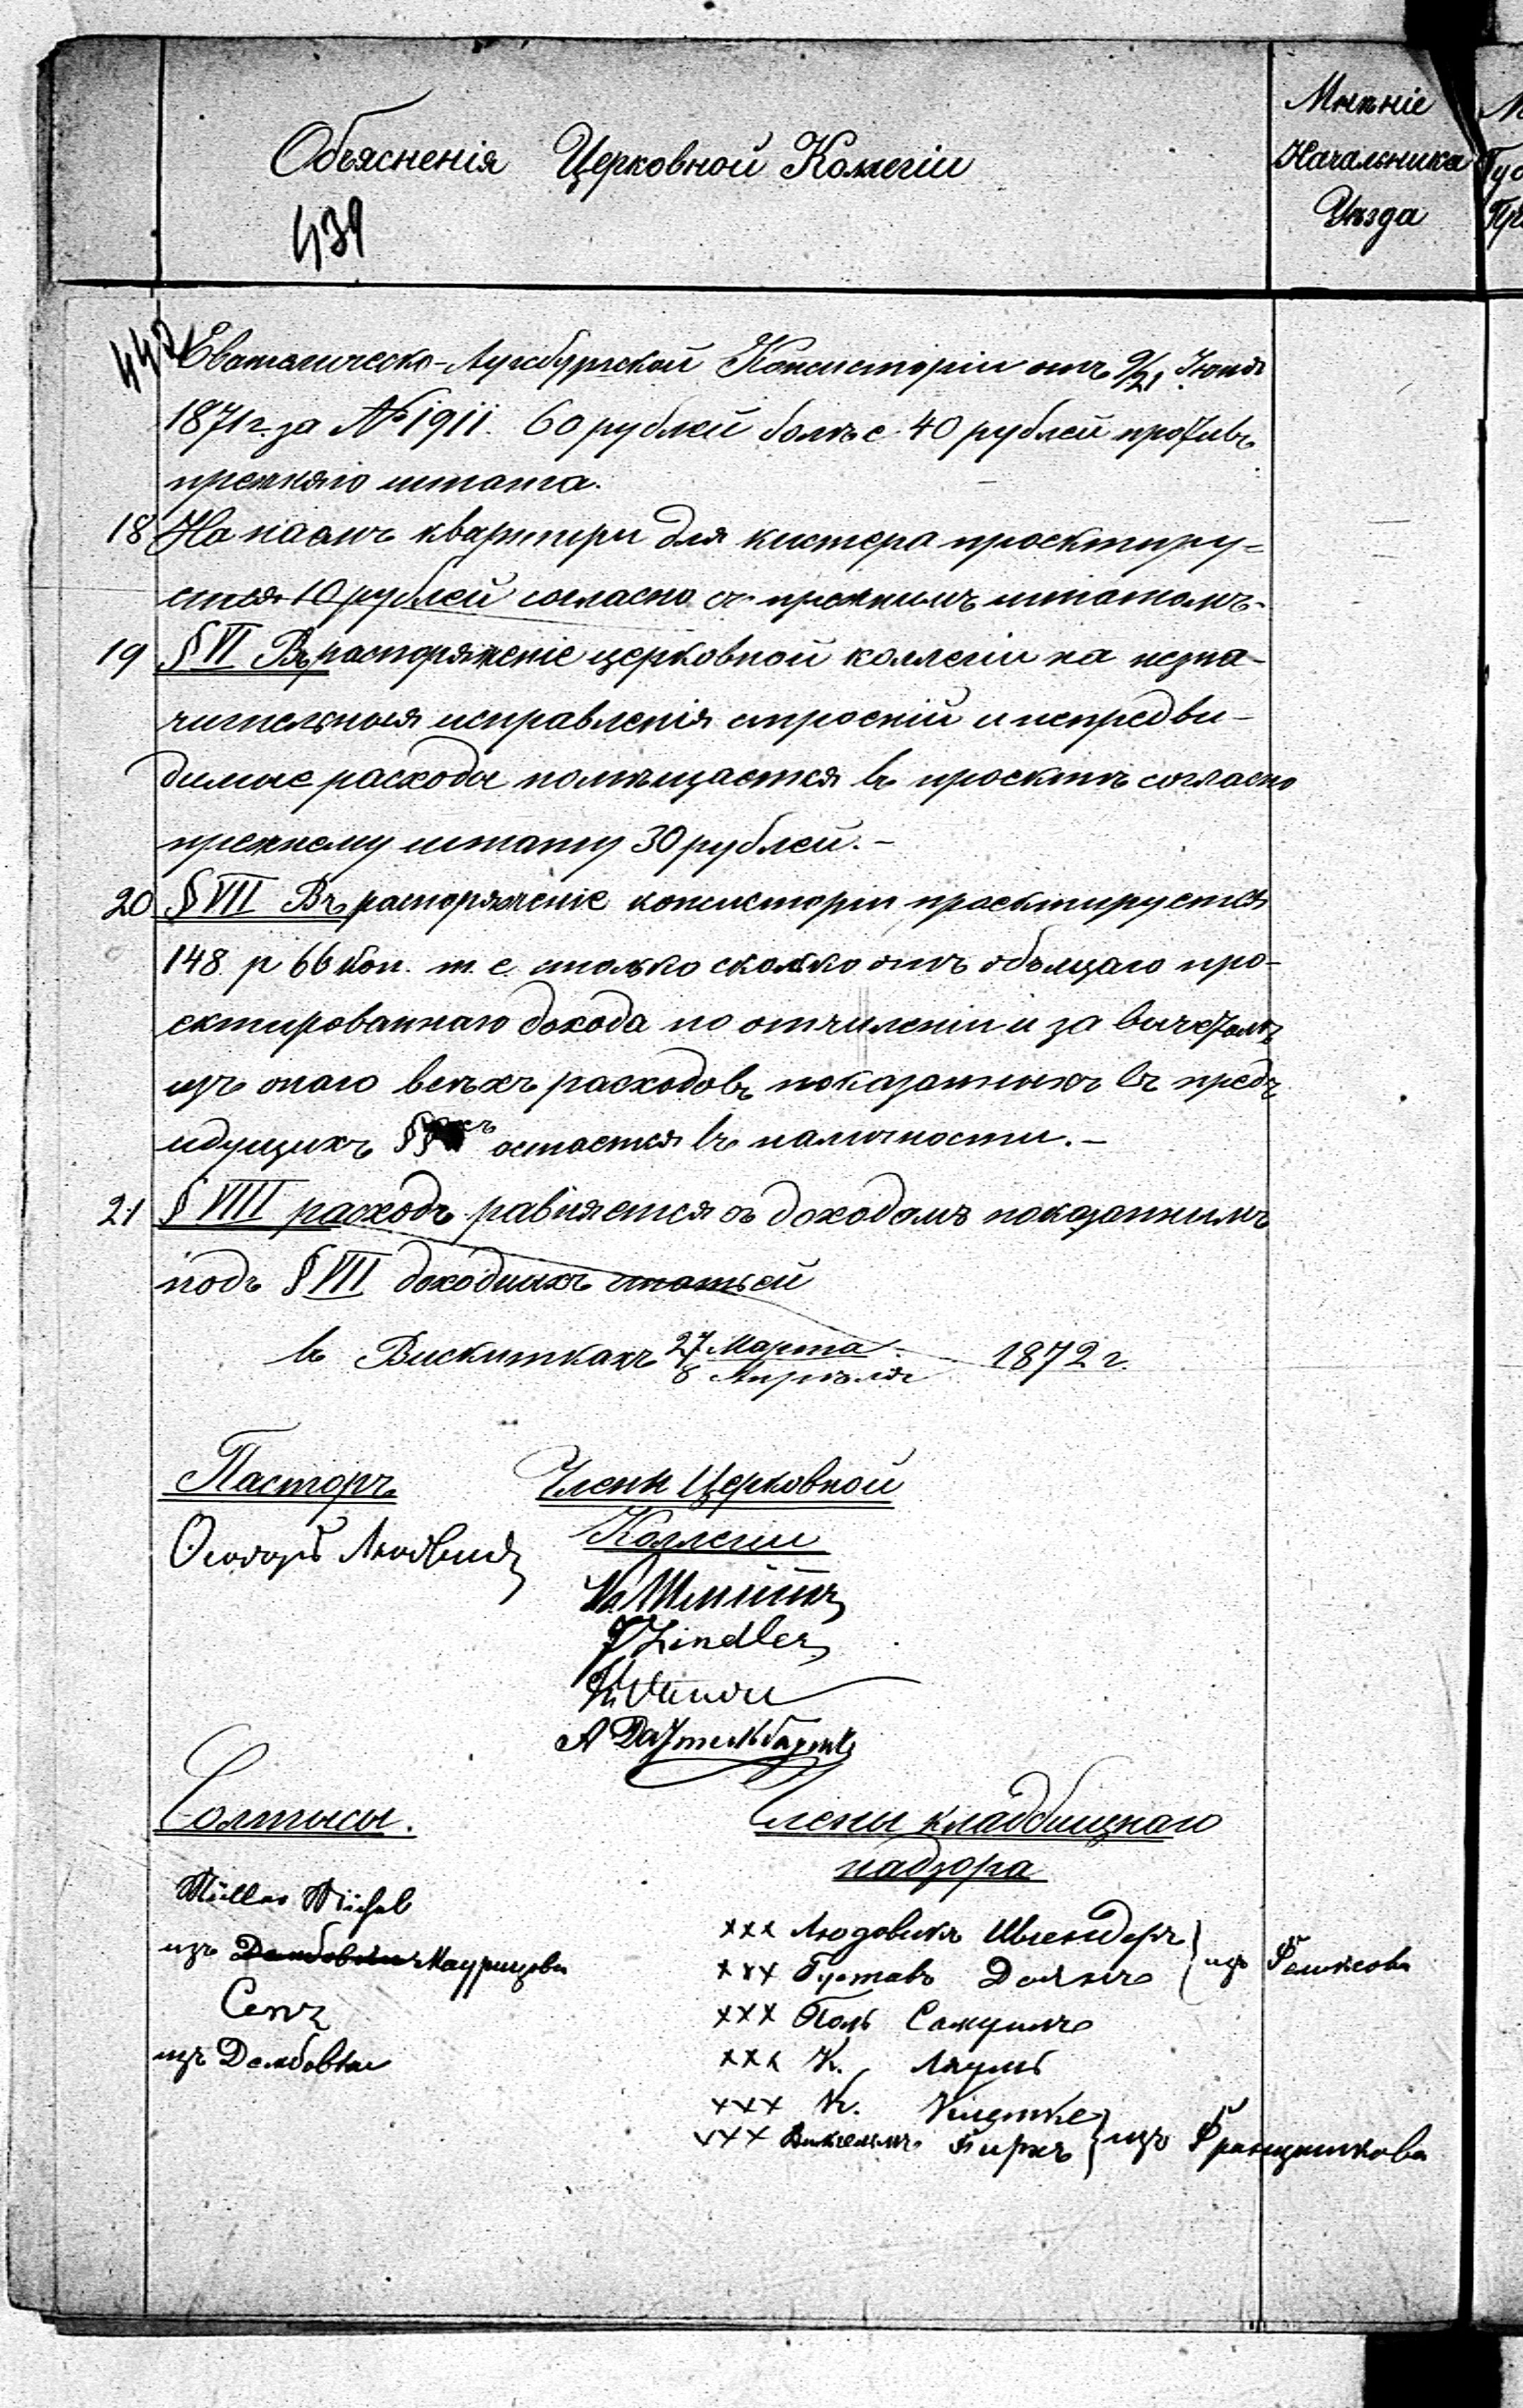 Объясненія Церковной Коллегіи
439
Мнѣніе
Начальника
Уѣзда
442
Евангелическо-Аугсбургской Консисторіи отъ 9/21 Іюня
1871 г. за № 1911. 60 рублей болѣе 40 рублей противъ
прежняго штата.
18 На наемъ квартиры для кистера проектиру=
ется 10 рублей согласно съ прежнимъ штатомъ.
19 § VI Въ распоряженіе церковной коллегіи на незна-
чительныя исправленія строеній и непредви-
димые расходы помѣщается въ проектѣ согласно
прежнему штату 30 рублей. -
20 § VII Въ распоряженіе консисторіи проектируется
148 р 66 коп. т. е. столько сколько отъ общаго про-
ектированнаго дохода по отчисленіи и за вычетомъ
изъ онаго всѣхъ расходовъ показанныхъ въ предъ
идущихъ §§хъ остается въ наличности. -
21 § VIII расходъ равняется съ доходомъ показаннымъ
подъ § VII доходныхъ статьей
въ Вискиткахъ 27 Марта / 8 Апрѣля 1872 г.
Пасторъ
Члены Церковной
Коллегіи
Ѳеодоръ Людвигъ
Шмитъ
Zindler
А
Солтысы.
Члены кладбищнаго
надзора
Müller Michel
изъ Маурицова
изъ Дембовки
xxx Людовикъ Шлендеръ
xxx Густавъ
изъ Феликсова
xxx Поль
xxx К.
xxx К.
xxx Вильгельмъ Биркъ
изъ Францишкова